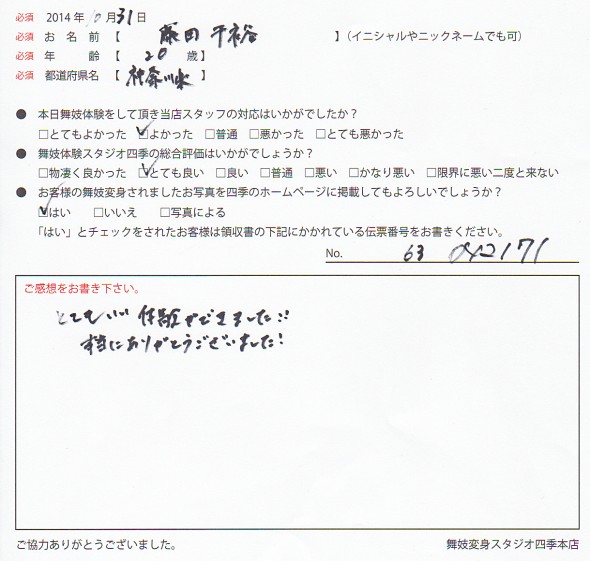 必須 2014年10月31日
必須 お名前【 藤田 千裕 】(イニシャルやニックネームでも可)
必須 年齢【 20 歳】
必須 都道府県名【 神奈川県 】
● 本日舞妓体験をして頂き当店スタッフの対応はいかがでしたか?
□とてもよかった ☑よかった □普通 □悪かった □とても悪かった
● 舞妓体験スタジオ四季の総合評価はいかがでしょうか?
□物凄く良かった ☑とても良い □良い □普通 □悪い □かなり悪い □限界に悪い二度と来ない
● お客様の舞妓変身されましたお写真を四季のホームページに掲載してもよろしいでしょうか?
☑はい □いいえ □写真による
「はい」とチェックをされたお客様は領収書の下記にかかれている伝票番号をお書きください。
No. 63 042171
ご感想をお書き下さい。
とてもいい体験ができました!!
本当にありがとうございました!
ご協力ありがとうございました。 舞妓変身スタジオ四季本店